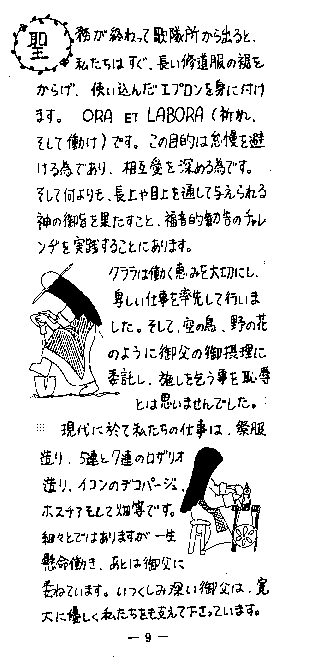 聖務が終わって歌隊所から出ると、
私たちはすぐ、長い修道服の裾を
からげ、使い込んだエプロンを身に付け
ます。 ORA ET LABORA (祈れ、
そして働け)です。この目的は怠慢を避
ける為であり、相互愛を深める為です。
そして何よりも、長上や目上を通して与えられる
神の御旨を果たすこと、福音的勧告のチャレ
ンヂを実践することにあります。
クララは働く恵みを大切にし、
卑しい仕事を率先して行いま
した。そして、空の鳥、野の花
のように御父の御摂理に
委託し、施しを乞う事を恥辱
とは思いませんでした。
現代に於て私たちの仕事は、祭服
造り、5連と7連のロザリオ
造り、イコンのデコパージュ、
ホスチアそして畑等です。
細々とではありますが一生
懸命働き、あとは御父に
委ねています。いつくしみ深い御父は、寛
大に優しく私たちをも支えて下さっています。
— 9 —